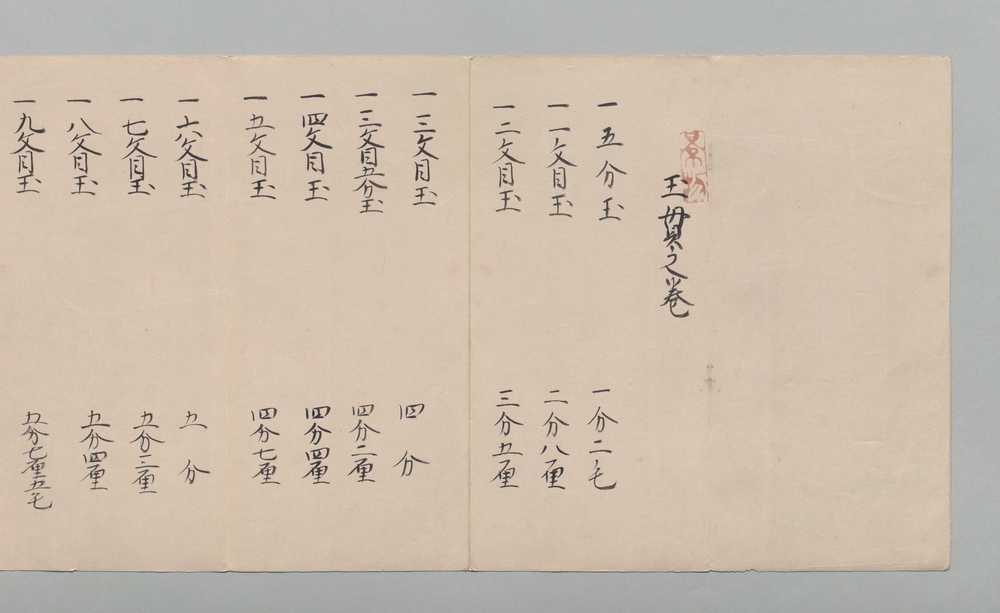 玉貫之巻
一五分玉 一分二毛
一一文目玉 二分八厘
一二文目玉 三分五厘
一三文目玉 四分
一三文目五分玉 四分二厘
一四文目玉 四分四厘
一五文目玉 四分七厘
一六文目玉 五分
一七文目玉 五分二厘
一八文目玉 五分四厘
一九文目玉 五分七厘五毛